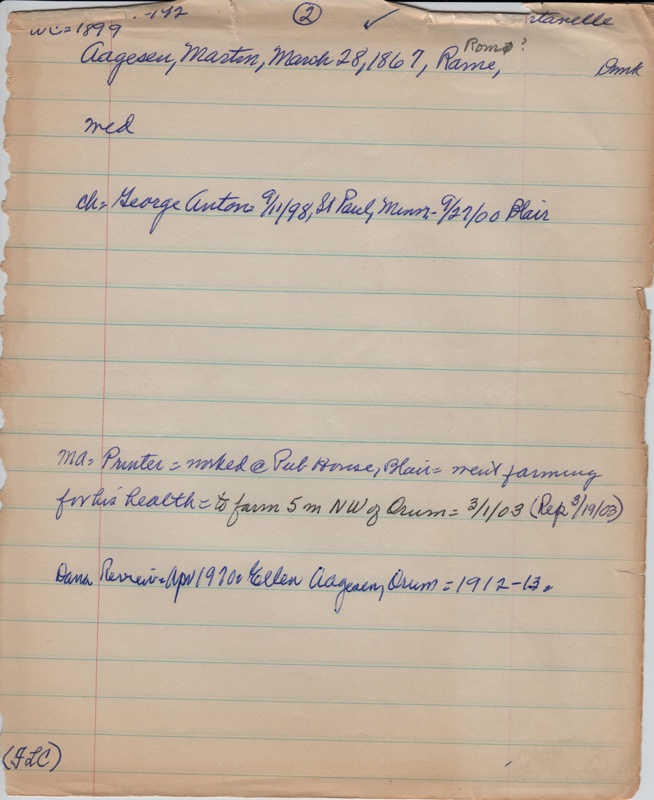 WC=1899 -142 ② ✓ tanelle
Romø?
Aagesen, Martin, March 28, 1867, Rame, Dmk
med
ch= George Anton= 9/11/98, St Paul, Minn- 9/27/00 Blair
Ma= Printer= worked @ Pub House, Blair= went farming
for his health= to farm 5 m NW of Orum= 3/1/03 (Rep 3/19/03)
Dana Review= Apr 1970= Ellen Aagesen, Orum = 1912-13.
(FLC)